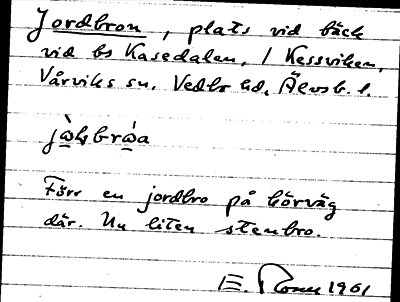 Jordbron, plats vid bäck
vid bs Kasedalen, / Kessviken,
Vårviks sn. Vedbo hd, Älvsb. l.
Förr en jordbro på körväg
där. Nu liten stenbro.
E. 1961